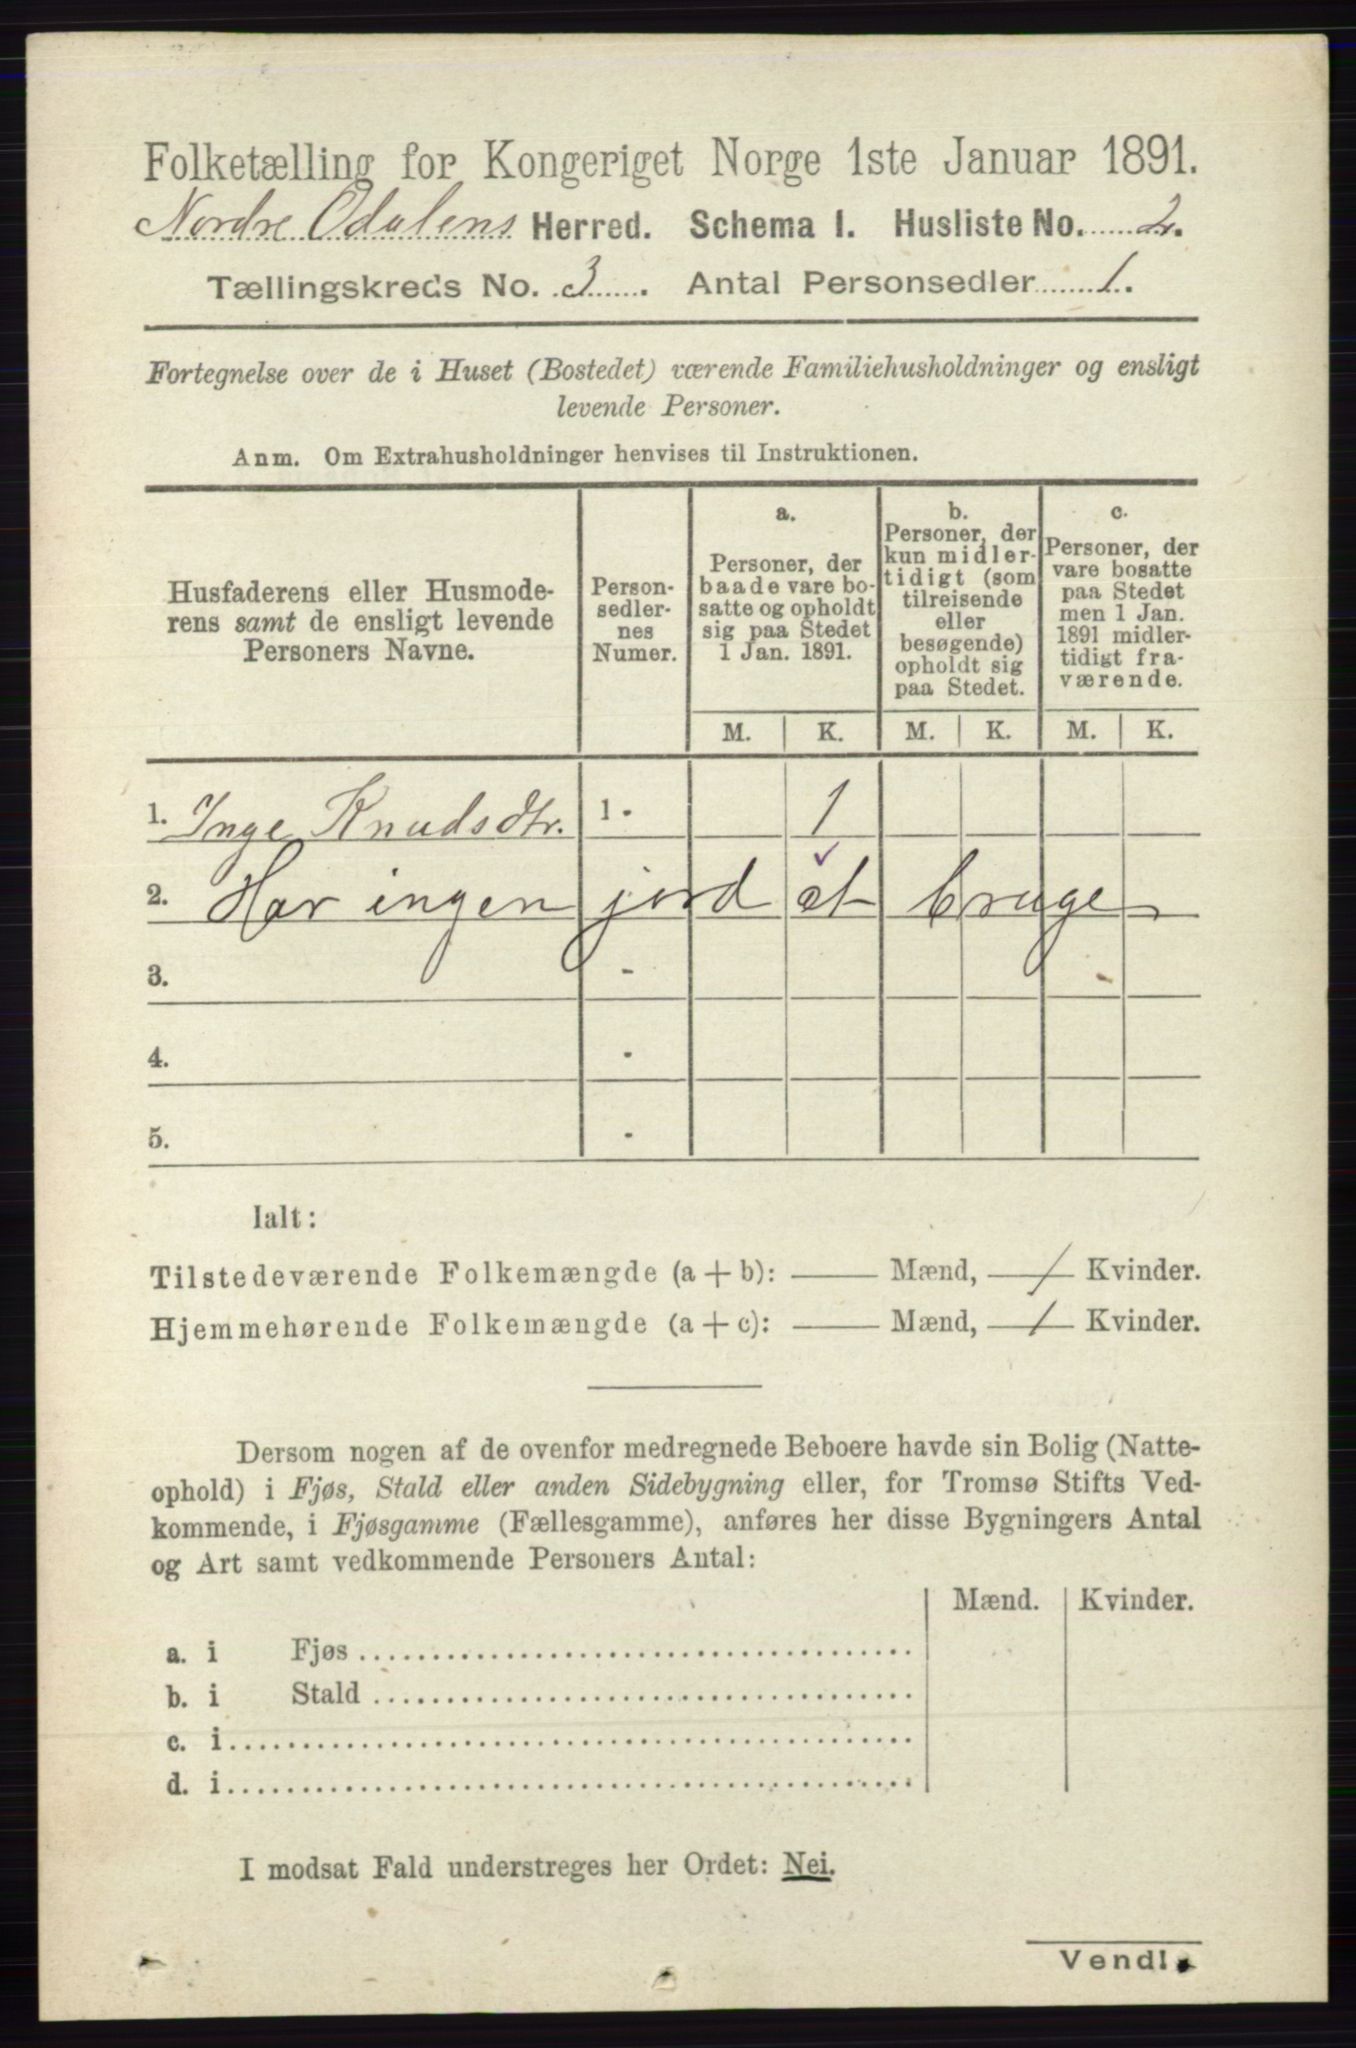 Folketælling for Kongeriget Norge 1ste Januar 1891.
Nordre Odalens Herred. Schema I. Husliste No. 2.
Tællingskreds No. 3. Antal Personsedler 1.
Fortegnelse over de i Huset (Bostedet) værende Familiehusholdninger og ensligt
levende Personer.
Anm. Om Extrahusholdninger henvises til Instruktionen.
Husfaderens eller Husmode-
rens samt de ensligt levende
Personers Navne.
Person-
sedler-
nes
Numer.
a.
Personer, der
baade vare bo-
satte og opholdt
sig paa Stedet
1 Jan. 1891.
b.
Personer, der
kun midler-
tidigt (som
tilreisende
eller
besøgende)
opholdt sig
paa Stedet.
c.
Personer, der
vare bosatte
paa Stedet
men 1 Jan.
1891 midler-
tidigt fra-
værende.
M. K. M. K. M. K.
1. Inge Knudsdtr. 1 - 1
2. Har ingen jord at bruge
3. -
4. -
5. -
Ialt:
Tilstedeværende Folkemængde (a+b): Mænd, 1 Kvinder.
Hjemmehørende Folkemængde (a+c): Mænd, 1 Kvinder.
Dersom nogen af de ovenfor medregnede Beboere havde sin Bolig (Natte-
ophold) i Fjøs, Stald eller anden Sidebygning eller, for Tromsø Stifts Ved-
kommende, i Fjøsgamme (Fællesgamme), anføres her disse Bygningers Antal
og Art samt vedkommende Personers Antal:
Mænd. Kvinder.
a. i Fjøs
b. i Stald
c. i
d. i
I modsat Fald understreges her Ordet: Nei.
Vend!